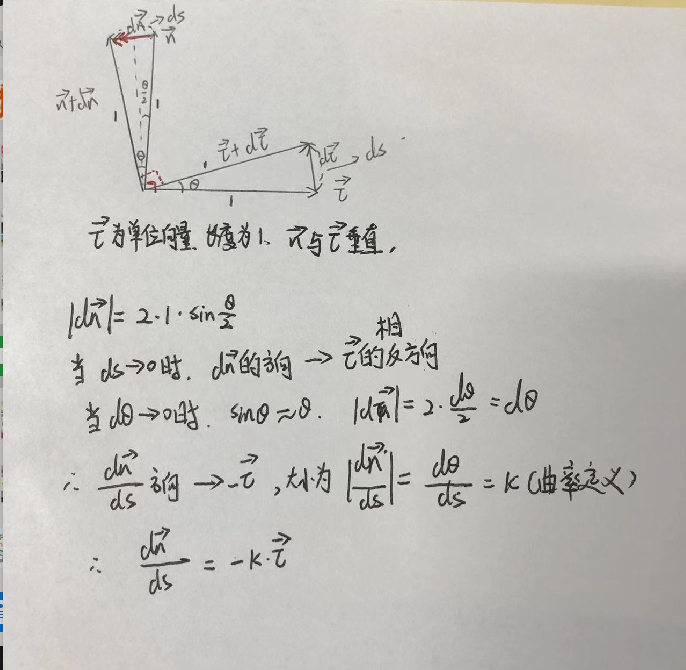 dn⃗ → ds
n⃗
n⃗+dn⃗
θ/2
1
1
θ
τ⃗+dτ⃗
1
dτ⃗
ds
θ
τ⃗
1
τ⃗为单位向量,长度为1、n⃗与τ⃗垂直,
|dn⃗|=2·1·sin θ/2
相
当 ds→0时. dn⃗的方向 → τ⃗的反方向
当 dθ→0时. sinθ≈θ. |dn⃗|=2·dθ/2=dθ
∴ dn⃗/ds 方向 → -τ⃗ ,大小为 |dn⃗/ds|=dθ/ds=K(曲率定义)
∴ dn⃗/ds = -K·τ⃗